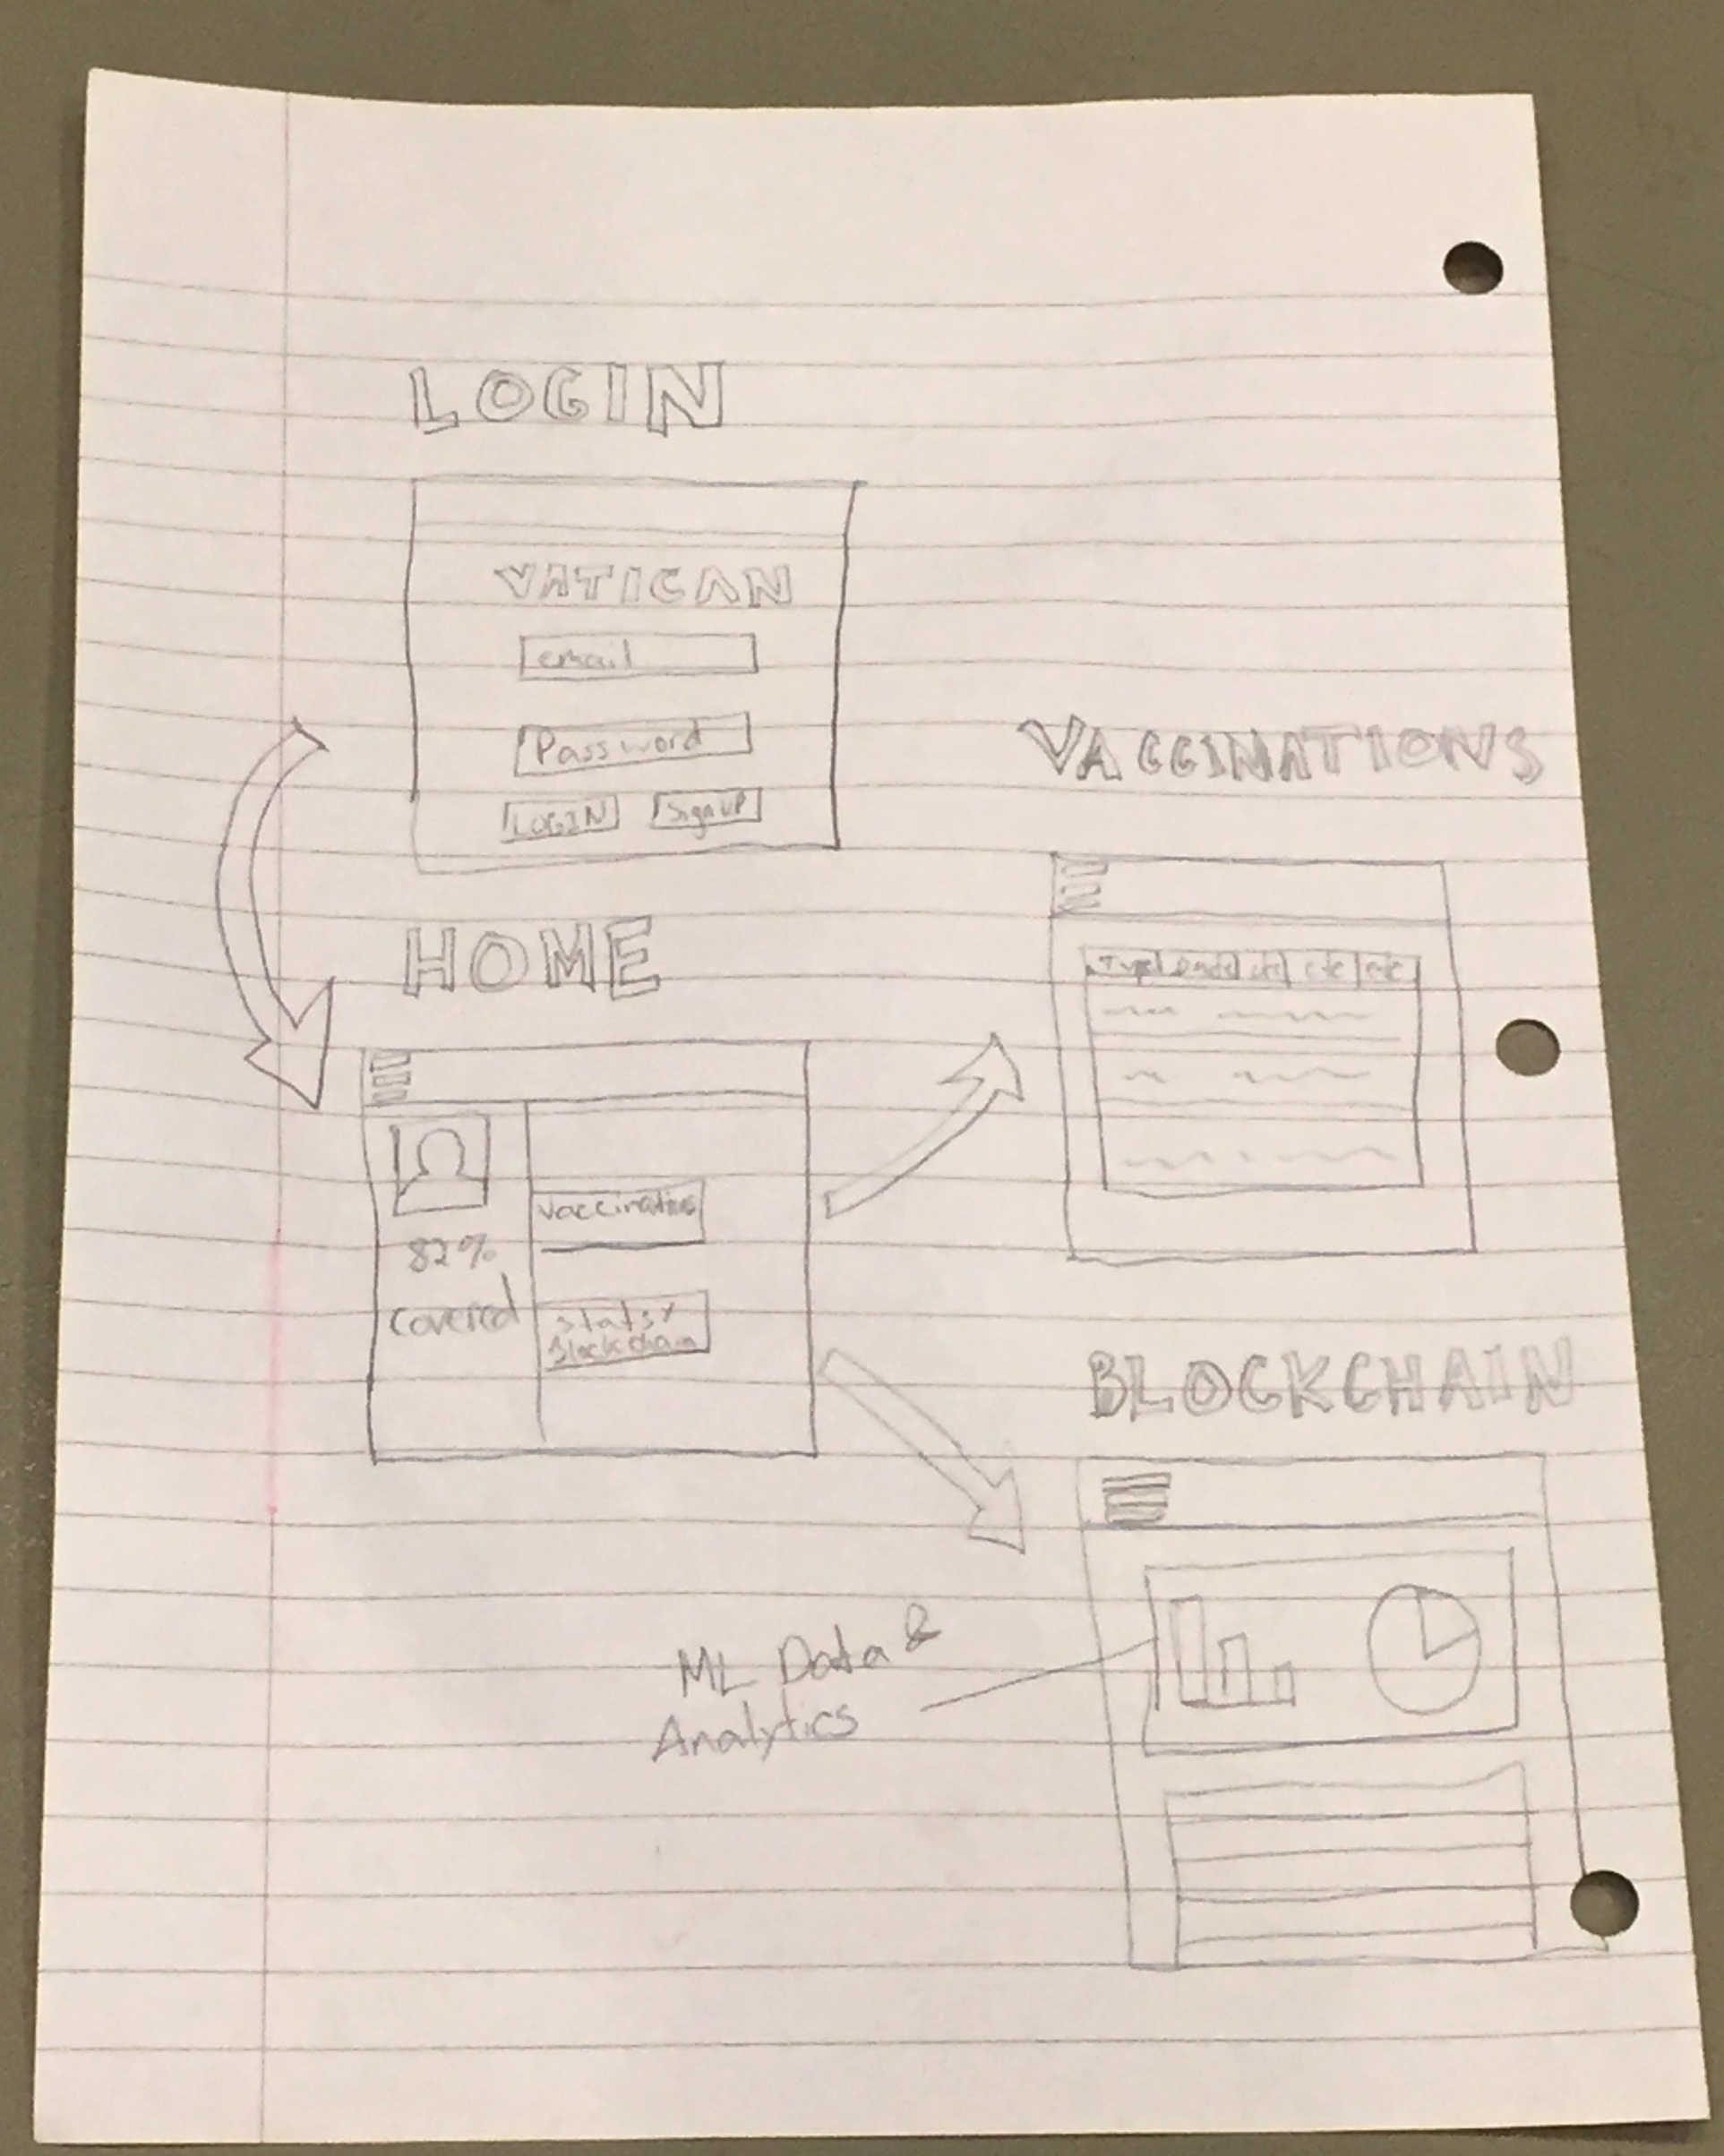 LOGIN
VATICAN
email
Password
LOGIN Sign UP
HOME
82%
covered
Vaccinations
Stats/
Blockchain
VACCINATIONS
Type etc etc etc
BLOCKCHAIN
ML Data &
Analytics